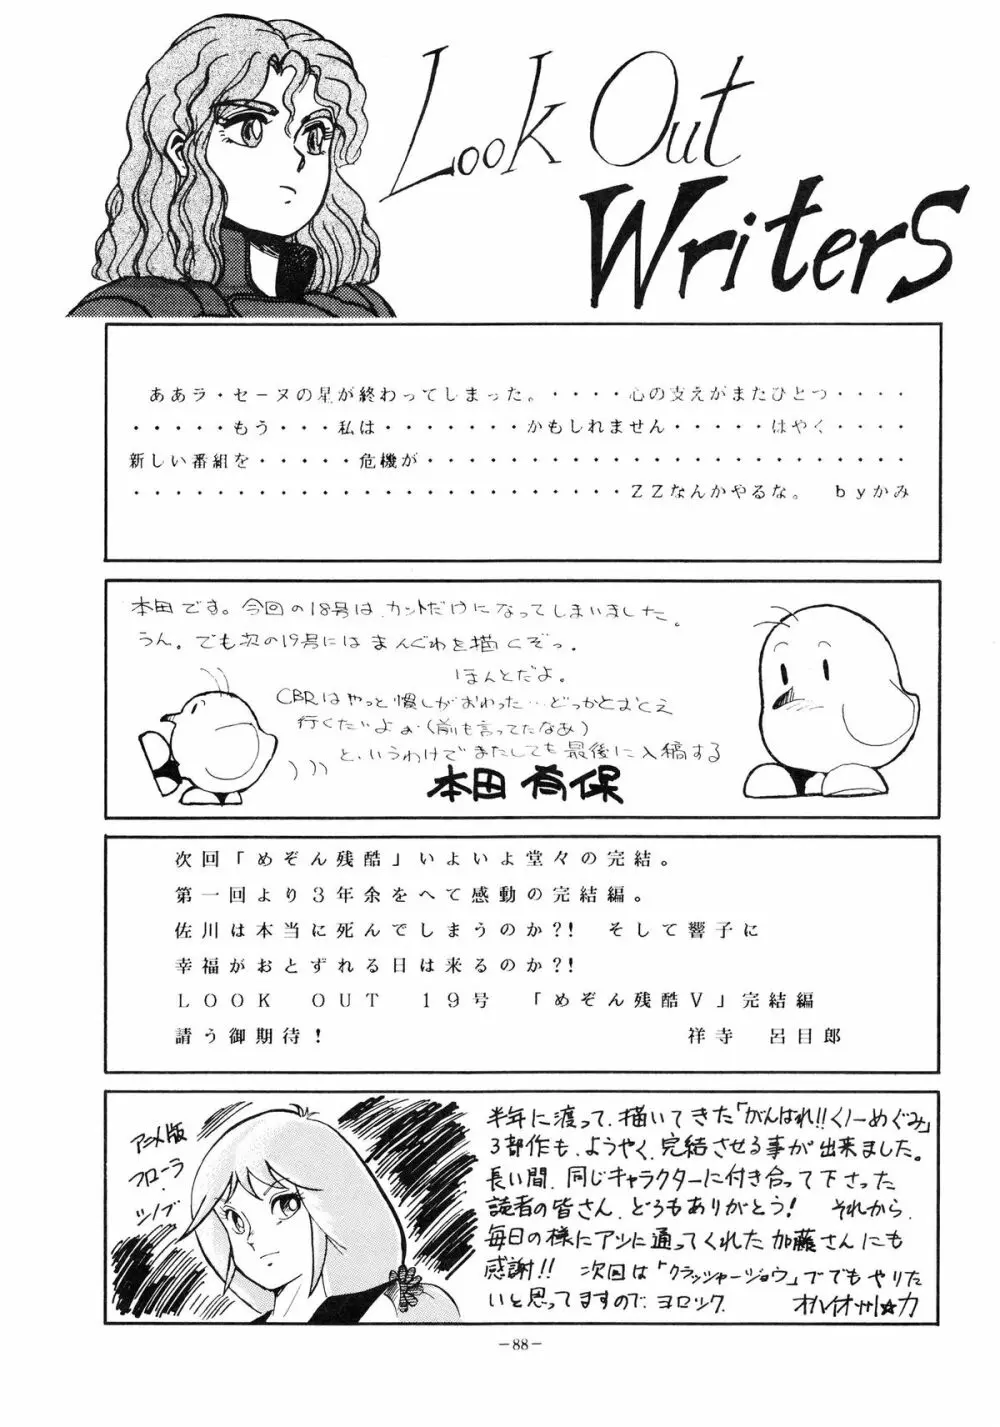 Look Out
Writers
ああラ・セーヌの星が終わってしまった。・・・・心の支えがまたひとつ・・・・
・・・・・もう・・・私は・・・・・・・かもしれません・・・・・はやく・・・・
新しい番組を・・・・・危機が・・・・・・・・・・・・・・・・・・・・・・・
・・・・・・・・・・・・・・・・・・・・・・・・ZZなんかやるな。 byかみ
本田です。今回の18号は、カットだけになってしまいました。
うん。でも次の19号にはまんがを描くぞっ。
ほんとだよ。
CBRはやっと慣しがおわった…どっかとおくえ
行くたいよぉ(前も言ってたなあ)
と、いうわけでまたしても最後に入稿する
本田 有保
次回「めぞん残酷」いよいよ堂々の完結。
第一回より3年余をへて感動の完結編。
佐川は本当に死んでしまうのか?! そして響子に
幸福がおとずれる日は来るのか?!
LOOK OUT 19号 「めぞん残酷V」完結編
請う御期待! 祥寺 呂目郎
アニメ版
フローラ
シノブ
半年に渡って、描いてきた「がんばれ!!くノ一めぐみ」
3部作も、ようやく完結させる事が出来ました。
長い間、同じキャラクターに付き合って下さった
読者の皆さん、どうもありがとう! それから、
毎日の様にアシに通ってくれた加藤さんにも
感謝!! 次回は「クラッシャージョウ」ででもやりた
いと思ってますので、ヨロシク。
-88-